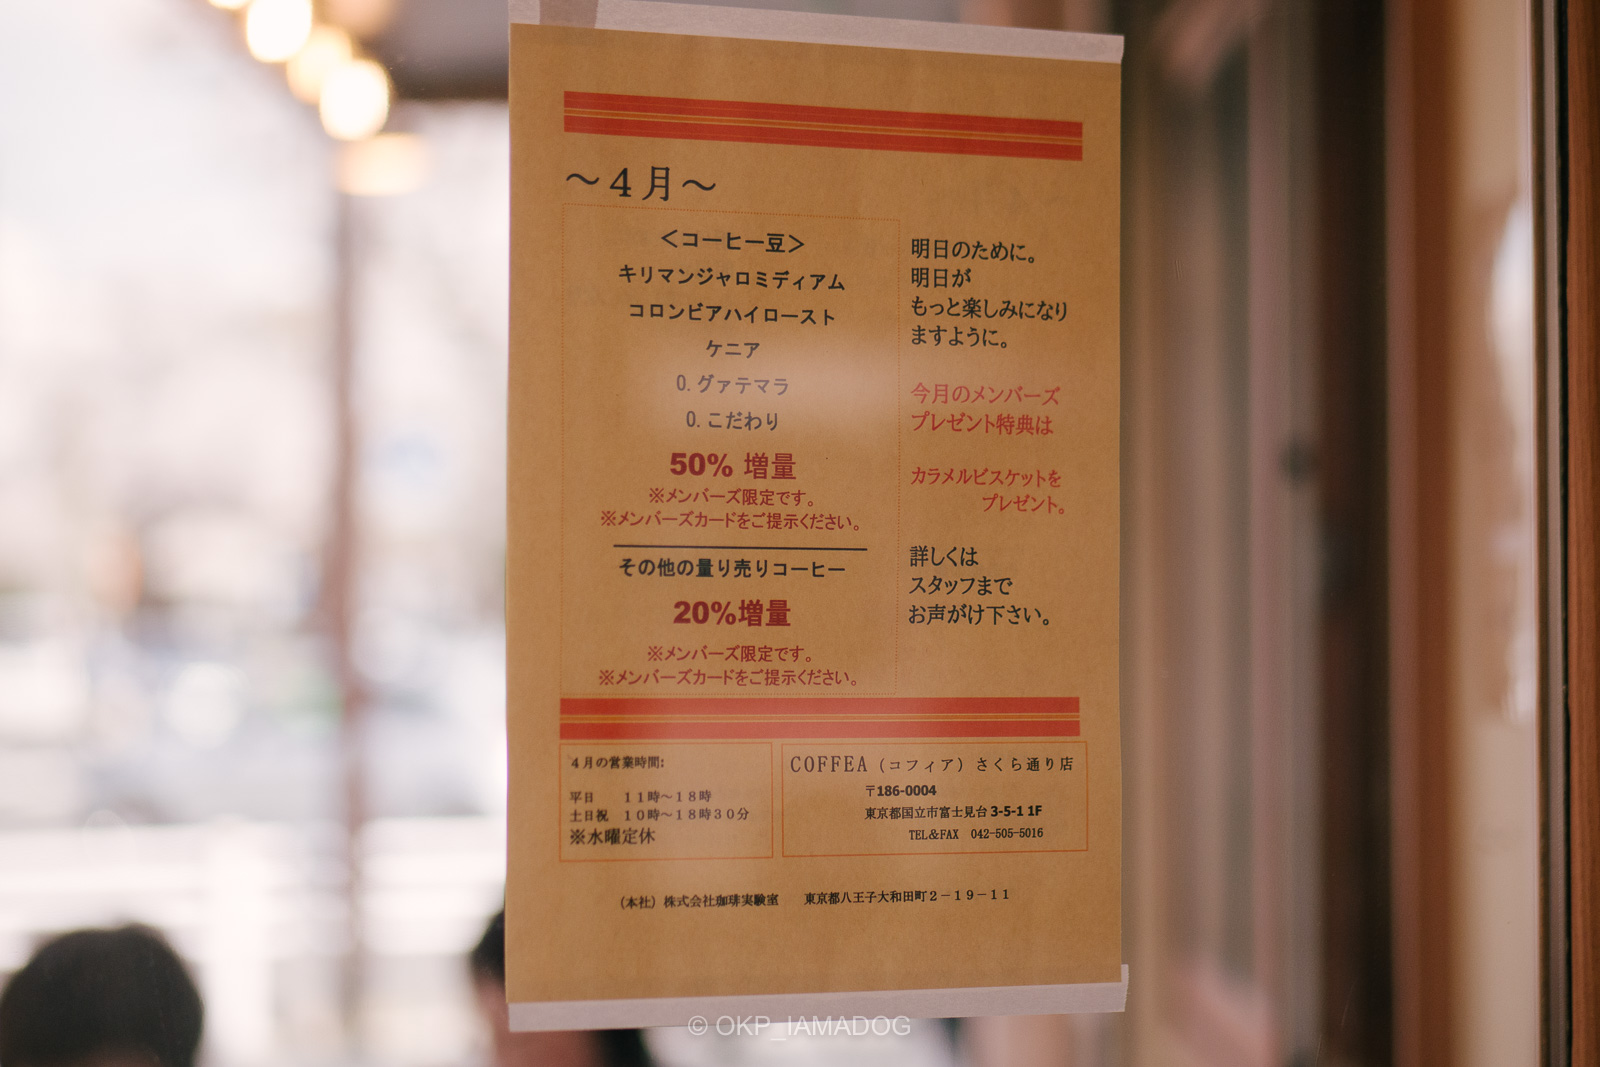 ～４月～
＜コーヒー豆＞
キリマンジャロミディアム
コロンビアハイロースト
ケニア
O.グァテマラ
O.こだわり
50% 増量
※メンバーズ限定です。
※メンバーズカードをご提示ください。
その他の量り売りコーヒー
20%増量
※メンバーズ限定です。
※メンバーズカードをご提示ください。
明日のために。
明日が
もっと楽しみになり
ますように。
今月のメンバーズ
プレゼント特典は
カラメルビスケットを
プレゼント。
詳しくは
スタッフまで
お声がけ下さい。
４月の営業時間:
平日　１１時～１８時
土日祝　１０時～１８時３０分
※水曜定休
COFFEA（コフィア）さくら通り店
〒186-0004
東京都国立市富士見台 3-5-1 1F
TEL＆FAX　042-505-5016
（本社）株式会社珈琲実験室　東京都八王子大和田町２－１９－１１
© OKP_IAMADOG